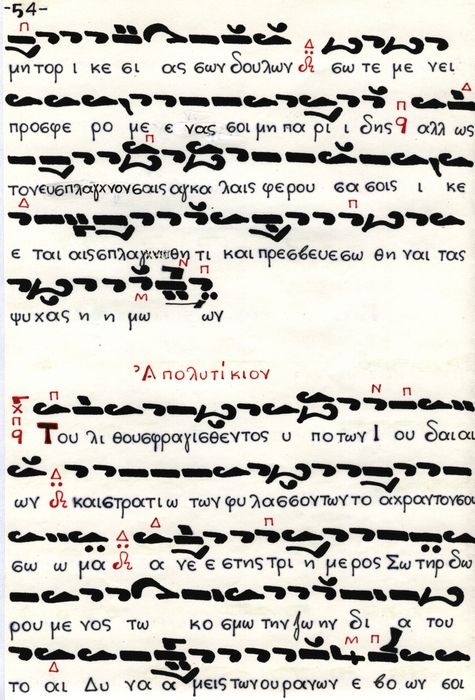 -54-
μη τορ ι κε σι ας σων δουλων σω τε με νει
προσφε ρο με ε νας σοι μη πα ρι ι δης αλλ ως
τον ευσπλαγχνον σαις αγκα λαις φερου σα σοις ι κε
ε ται αις σπλαγχνισθη τι και πρεσβευε σω θη ναι τας
ψυχας η η μω ων
Ἀπολυτίκιον
Του λι θου σφραγισθεντος υ πο των Ι ου δαι αι
ων και στρατι ω των φυ λασσοντων το αχραντον σου
σω ω μα α νε ε στης τρι η μερος Σω τηρ δω
ρου με νος τω κο σμω την ζω ην δι α του
το αι Δυ να α μεις των ουρανων ε βο ων σοι